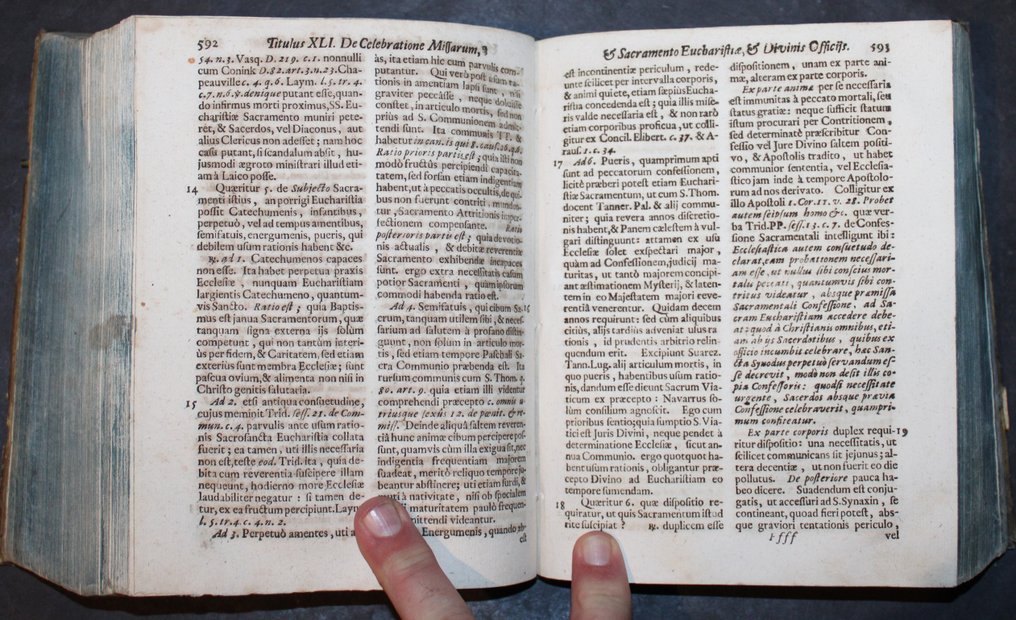 592 Titulus XLI. De Celebratione Missarum,
54. n. 3. Vasq. D. 219. c. 1. nonnulli
cum Conink D. 82. art. 3. n. 23. Cha-
peauville c. 4. q. 6. Laym. l. 5. tr. 4.
c. 7. n. 6. & denique putant esse, quan-
do infirmus morti proximus, SS. Eu-
charistiæ Sacramento muniri pete-
ret, & Sacerdos, vel Diaconus, aut
alius Clericus non adesset; nam hoc
casu putant, si scandalum absit, hu-
jusmodi ægroto ministrari illud eti-
am à Laico posse.
14 Quæritur 5. de Subjecto Sacra-
menti istius, an porrigi Eucharistia
possit Catechumenis, infantibus,
perpetuò, vel ad tempus amentibus,
semifatuis, energumenis, pueris, qui
debilem usum rationis habent &c.
℞. ad 1. Catechumenos capaces
non esse. Ita habet perpetua praxis
Ecclesiæ, nunquam Eucharistiam
largientis Catechumeno, quantum-
vis Sancto. Ratio est; quia Baptis-
mus est janua Sacramentorum, quæ
tanquam signa externa iis solùm
competunt, qui non tantùm interi-
ùs per fidem, & Caritatem, sed etiam
exteriùs sunt membra Ecclesiæ; sunt
pascua ovium, & alimenta non nisi in
Christo genitis salutaria.
15 Ad 2. etsi antiqua consuetudine,
cujus meminit Trid. sess. 21. de Com-
mun. c. 4. parvulis ante usum ratio-
nis Sacrosancta Eucharistia collata
fuerit; ea tamen, uti illis necessaria
non est, teste eod. Trid. ita, quia de-
bita cum reverentia suscipere illam
nequeunt, hodierno more Ecclesiæ
laudabiliter negatur: si tamen de-
tur, ex ea fructum percipiunt. Laym.
l. 5. tr. 4. c. 4. n. 2.
Ad 3. Perpetuò amentes, uti a
às, ita etiam hic cum parvulis com-
putantur. Qui verò post usum ra-
tionis in amentiam lapsi sunt, nisi
graviter peccâsse, neque doluisse
constet, in articulo mortis, sed non
prius ad S. Communionem admit-
tendi sunt. Ita communis TT. &
habetur in can. is qui 8. caus. 26. q. 6.
Ratio prioris partis est; quia illi non
modò fructûs percipiendi capaci-
tatem, sed forsan etiam indigentiam
habent, ut à peccatis occultis, de qui-
bus non fuerunt contriti, mundentur,
Sacramento Attritionis imper-
fectionem compensante. Ratio
posterioris partis est; quia devotio-
nis actualis, & debitæ reverentiæ
Sacramento exhibendæ incapaces
sunt. ergo extra necessitatis casum
potior Sacramenti, quàm ipsorum
commodi habenda ratio est.
Ad 4. Semifatuis, qui cibum Sa-
crum, tanquam utilem sibi, & neces-
sarium ad salutem à profano distin-
guunt, non solùm in articulo mor-
tis, sed etiam tempore Paschali Sa-
cra Communio præbenda est. Ita
rursum communis cum S. Thom. q.
80. art. 9. quia etiam illi videntur
comprehendi præcepto c. omnis u-
triusque sexûs 12. de pœnit. & re-
miss. Deinde aliquâ saltem reveren-
tiâ hunc animæ cibum percipere pos-
sunt, quamvis cùm illa exigua sit, nec
indigentia frequentiam majorem
suadeat, meritò reliquo tempore ju-
beantur abstinere; uti etiam surdi, &
muti à nativitate, nisi ob specialem
maturitatem paulò frequen-
mittendi videantur.
Energumenis, quando ab-
est
& Sacramento Eucharistiæ, & Divinis Officijs. 593
est incontinentiæ periculum, rede-
unte scilicet per intervalla corporis,
& animi quiete, etiam sæpius Eucha-
ristia concedenda est; quia illis mise-
ris valde necessaria est, & non rarò
etiam corporibus proficua, ut colli-
gitur ex Concil. Elibert. c. 37. & A-
raus. 1. c. 34.
17 Ad 6. Pueris, quamprimum apti
sunt ad peccatorum confessionem,
licitè præberi potest etiam Euchari-
stiæ Sacramentum, ut cum S. Thom.
docent Tanner. Pal. & alij commu-
niter; quia revera annos discretio-
nis habent, & Panem cælestem à vul-
gari distinguunt: attamen ex usu
Ecclesiæ solet exspectari major,
quàm ad Confessionem, judicij ma-
turitas, ut tantò majorem concipi-
ant æstimationem Mysterij, & laten-
tem in eo Majestatem majori reve-
rentiâ venerentur. Quidam decem
annos requirunt: sed cùm aliquibus
citiùs, alijs tardiùs adveniat usus ra-
tionis, id prudentis arbitrio relin-
quendum erit. Excipiunt Suarez.
Tann. Lug. alij articulum mortis, in
quo pueris, habentibus usum ratio-
nis, dandum esse dicunt Sacrum Via-
ticum ex præcepto: Navarrus so-
lùm consilium agnoscit. Ego cum
prioribus sentio; quia sumptio S. Via-
tici est Juris Divini, neque pendet à
determinatione Ecclesiæ, sicut an-
nua Communio. ergo quotquot ha-
bent usum rationis, obligantur præ-
cepto Divino ad Eucharistiam eo
tempore sumendam.
18 Quæritur 6. quæ dispositio re-
quiratur, ut quis Sacramentum istud
rite suscipiat? ℞. duplicem esse
dispositionem, unam ex parte ani-
mæ, alteram ex parte corporis.
Ex parte animæ per se necessaria
est immunitas à peccato mortali, seu
status gratiæ: neque sufficit statum
istum procurari per Contritionem,
sed determinatè præscribitur Con-
fessio vel Jure Divino saltem positi-
vo, & Apostolis tradito, ut habet
communior sententia, vel Ecclesia-
stico jam inde à tempore Apostolo-
rum ad nos derivato. Colligitur ex
illo Apostoli 1. Cor. 11. v. 28. Probet
autem seipsum homo &c. quæ ver-
ba Trid. PP. sess. 13. c. 7. de Confes-
sione Sacramentali intelligunt ibi:
Ecclesiastica autem consuetudo de-
clarat, eam probationem necessari-
am esse, ut nullus sibi conscius mor-
talu peccati, quantumvis sibi con-
tritus videatur, absque præmissa
Sacramentali Confessione, ad Sa-
cram Eucharistiam accedere debe-
at: quod à Christianis omnibus, eti-
am ab ijs Sacerdotibus, quibus ex
officio incumbit celebrare, hæc San-
cta Synodus perpetuò servandum es-
se decrevit, modò non desit illis co-
pia Confessoris: quodsi necessitate
urgente, Sacerdos absque prævia
Confessione celebraverit, quampri-
mum confiteatur.
Ex parte corporis duplex requi- 19
ritur dispositio: una necessitatis, ut
scilicet communicans sit jejunus; al-
tera decentiæ, ut non fuerit eo die
pollutus. De posteriore pauca ha-
beo dicere. Suadendum est conju-
gatis, ut accessuri ad S. Synaxin, se
contineant, quoad fieri potest, abs-
que graviori tentationis periculo,
Ffff vel